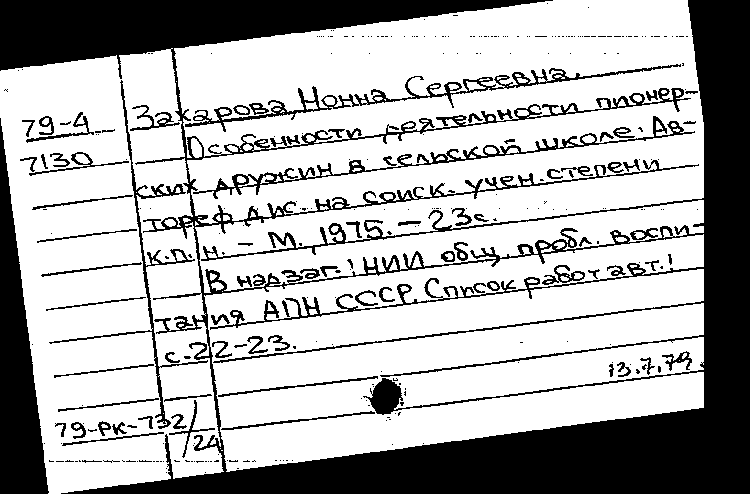 79-4
7130
Захарова, Нонна Сергеевна.
Особенности деятельности пионер-
ских дружин в сельской школе: Ав-
тореф. дис. на соиск. учен. степени
к.п.н. - М., 1975. - 23с.
В надзаг.: НИИ общ. пробл. воспи-
тания АПН СССР. Список работ авт.:
с. 22-23.
13.7.79.
79-РК-732/24